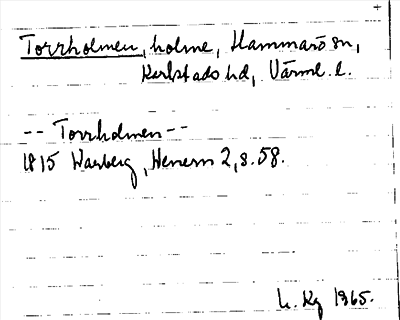 Torrholmen, holme, Hammarö sn,
Karlstads hd, Värml. l.
-- Torrholmen --
1815 Warberg, Henern 2, s. 58.
L. Kg 1965.